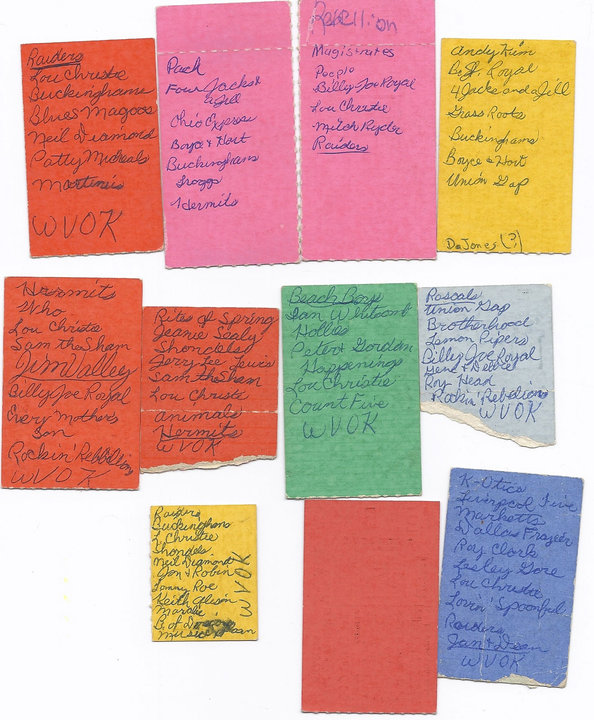 Raiders
Lou Christie
Buckinghams
Blues Magoos
Neil Diamond
Patty Micheals
Martinis
WVOK
Pack
Four Jacks &
a Jill
Ohio Express
Boyce & Hart
Buckinghams
Troggs
Hermits
Rebellion
Magistrates
People
Billy Joe Royal
Lou Christie
Mitch Ryder
Raiders
Andy Kim
B.J. Royal
4 Jacks and a Jill
Grass Roots
Buckinghams
Boyce & Hart
Union Gap
Da Jones (?)
Hermits
Who
Lou Christie
Sam the Sham
Jim Valley
Billy Joe Royal
Every Mother's
Son
Rockin' Rebbelions
WVOK
Rites of Spring
Jeanie Sealy
Shondells
Jerry Lee Lewis
Sam the Sham
Lou Christie
animals
Hermits
WVOK
Beach Boys
Ian Whitcomb
Hollies
Peter & Gordan
Happenings
Lou Christie
Count Five
WVOK
Rascals
Union Gap
Brotherhood
Lemon Pipers
Billy Joe Royal
Gene & Debbe
Roy Head
Rockin' Rebelions
WVOK
Raiders
Buckinghams
L. Christie
Shondels
Neil Diamond
Jon & Robin
Tommy Roe
Keith Alison
B. of
WVOK
K-Otics
Liverpool Five
Marketts
Dallas Frazier
Roy Clark
Lesley Gore
Lou Christie
Lovin' Spoonful
Raiders
Jan & Dean
WVOK